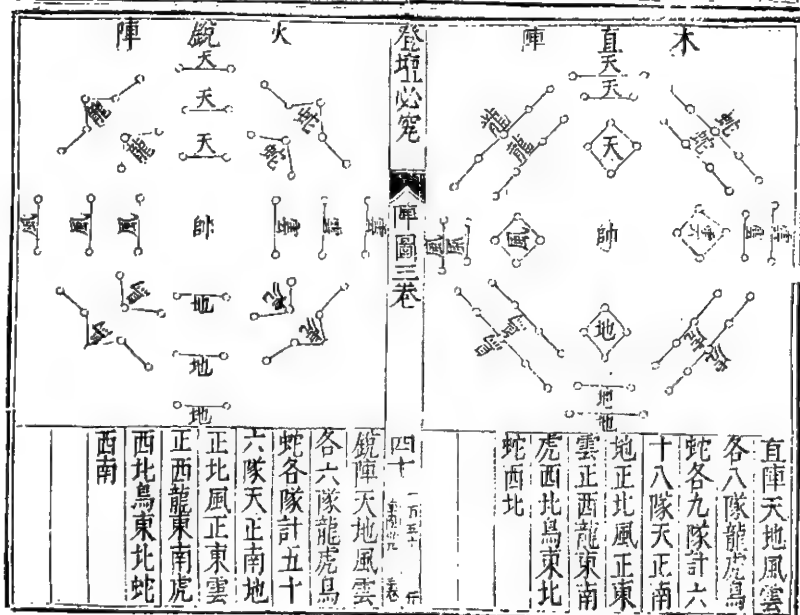 木直陣
天
天
天
蛇
蛇
龍
龍
雲
雲
雲
帥
風
風
風
虎
虎
鳥
鳥
地
地
地
直陣天地風雲
各八隊龍虎鳥
蛇各九隊計六
十八隊天正南
地正北風正東
雲正西龍東南
虎西北鳥東北
蛇西北
登壇必究
陣圖三卷
四十
火銳陣
天
天
天
蛇
蛇
龍
龍
雲
雲
雲
帥
風
風
風
虎
虎
鳥
鳥
地
地
地
銳陣天地風雲
各六隊龍虎鳥
蛇各隊計五十
六隊天正南地
正北風正東雲
正西龍東南虎
西北鳥東北蛇
西南